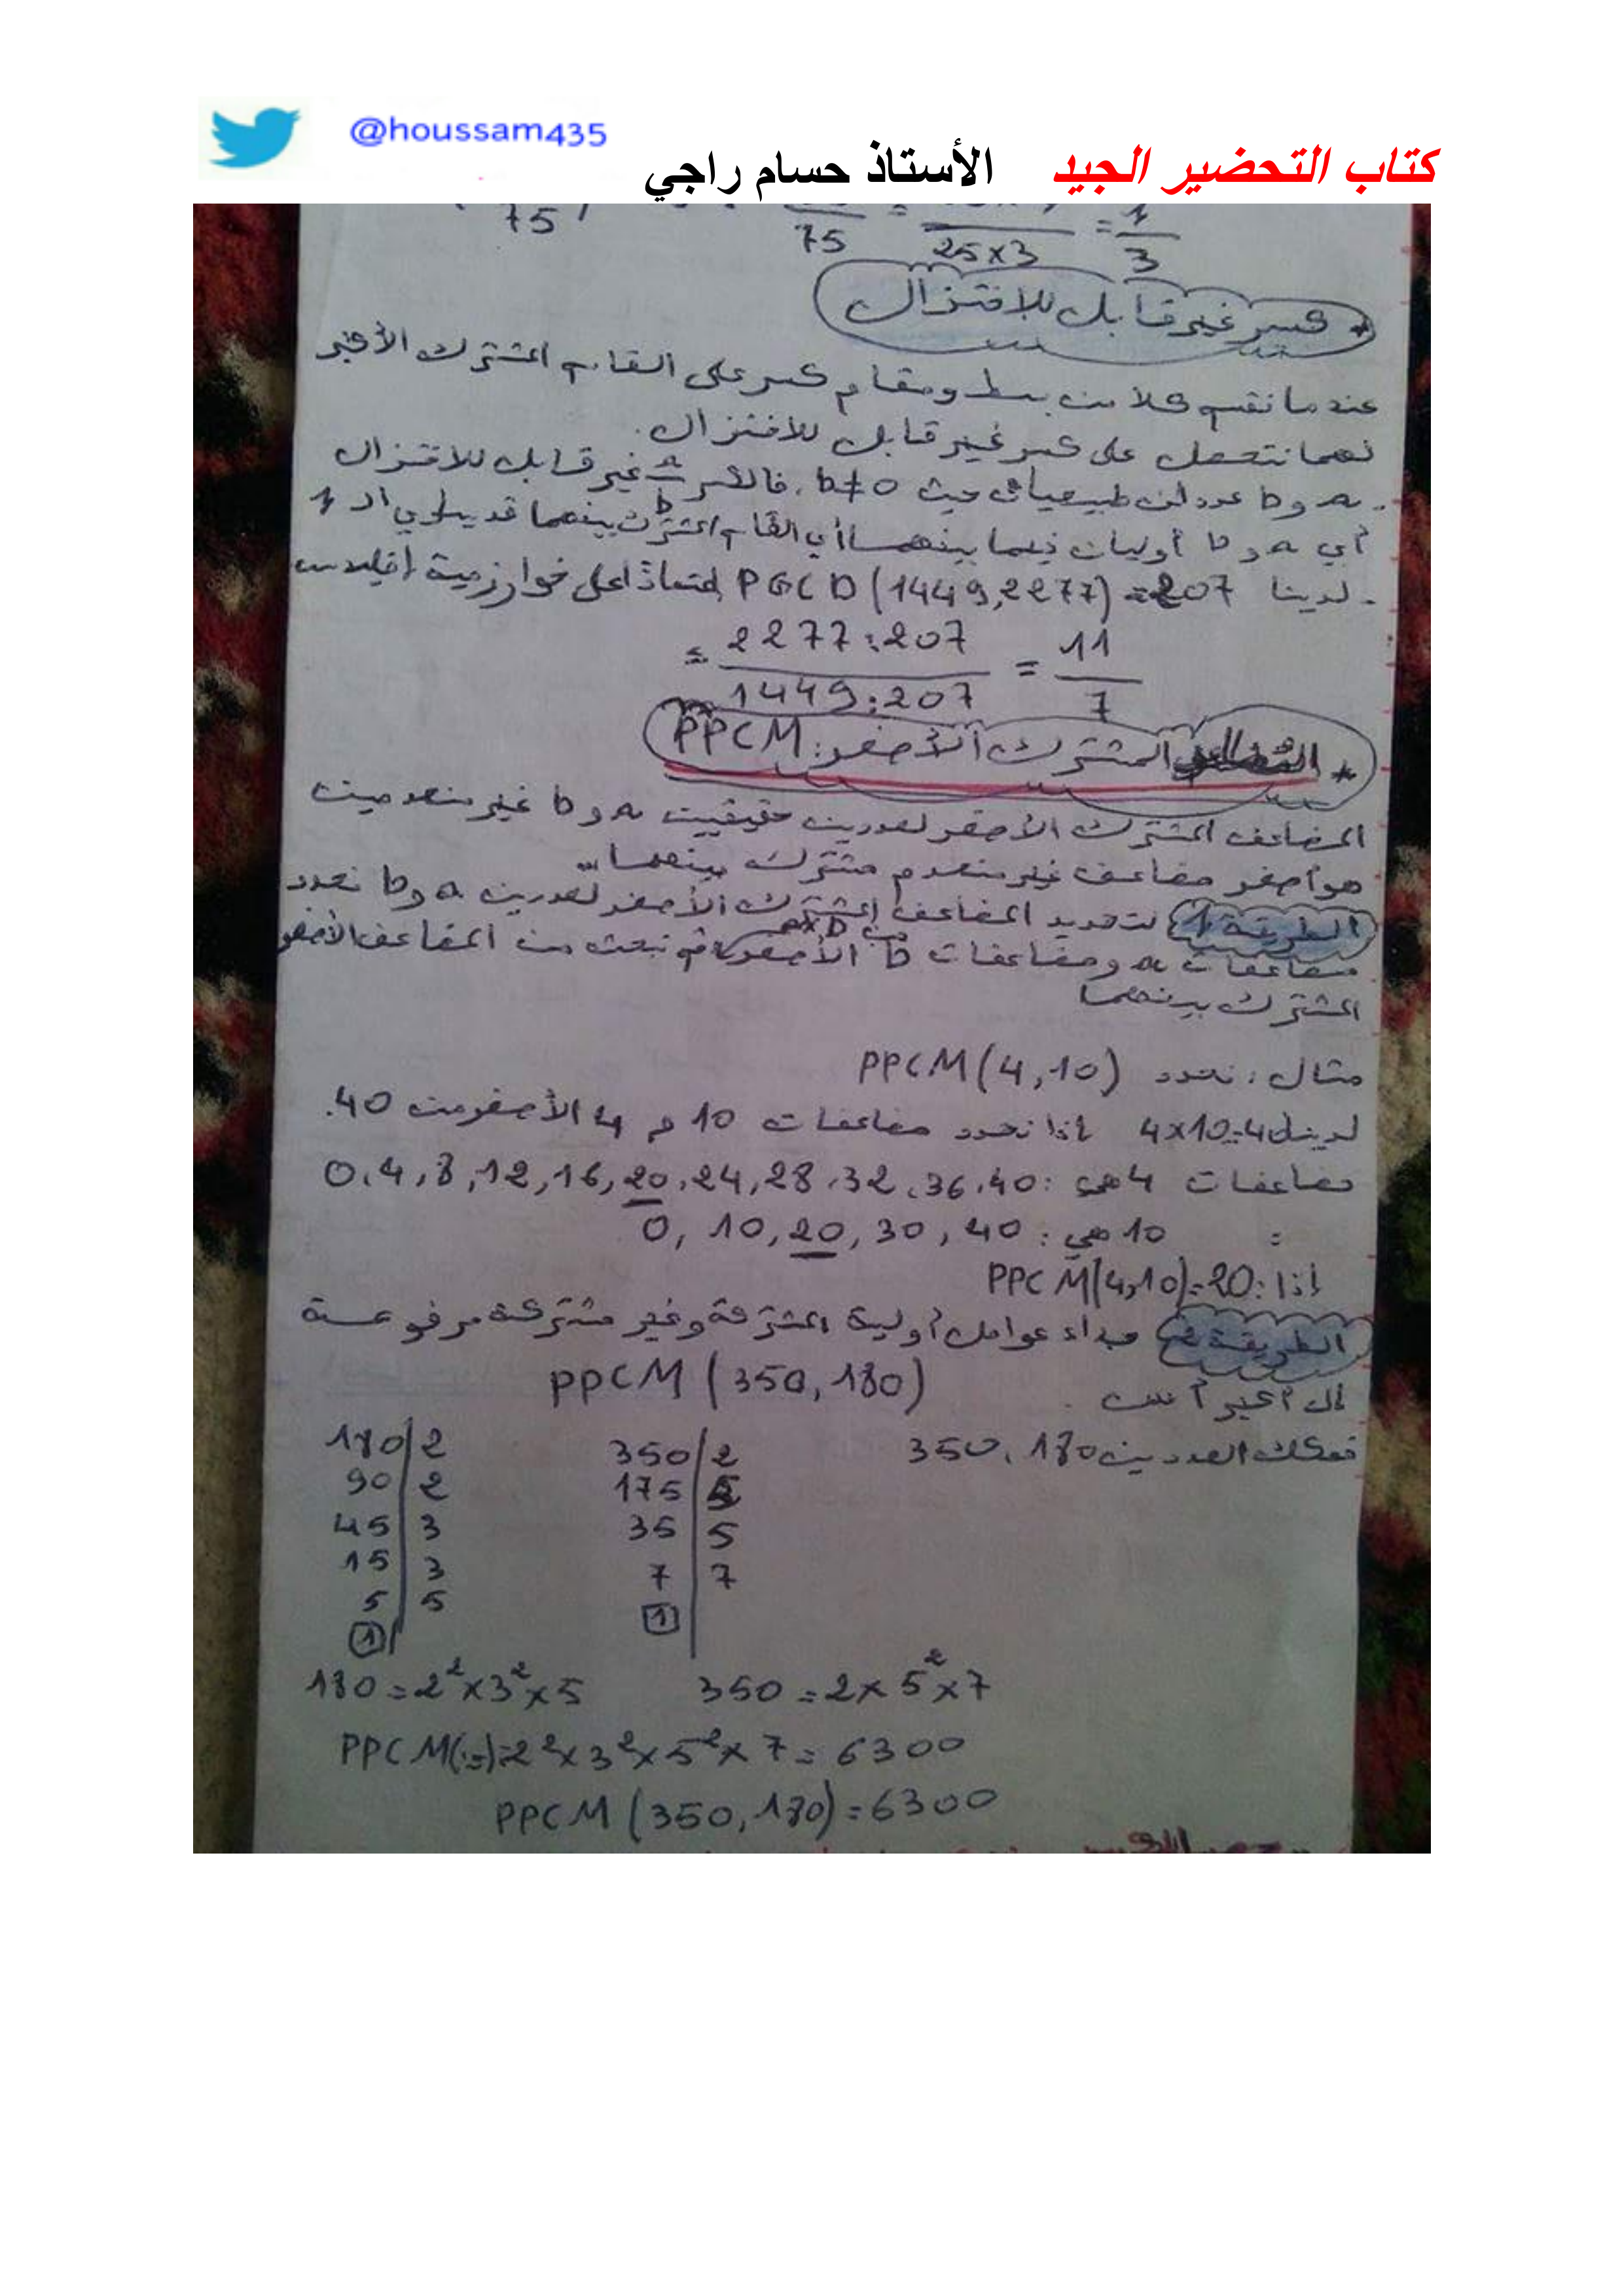 @houssam435
كتاب التحضير الجيد الأستاذ حسام راجي
75 75 25x3 = 1/3
* كسر غير قابل للاختزال
عندما نقسم كلا من بسط ومقام كسر على القاسم المشترك الأكبر
لهما نتحصل على كسر غير قابل للاختزال.
. a و b عددان طبيعيان حيث b≠0 . فالكسر a/b غير قابل للاختزال
أي a و b أوليان فيما بينهما أي القاسم المشترك بينهما 1
. لدينا PGCD(1449,2277)=207 اعتمادًا على خوارزمية إقليدس
= 2277:207 / 1449:207 = 11/7
* المشترك الأصغر: PPCM
المضاعف المشترك الأصغر لعددين حقيقيين a و b غير منعدمين
هو أصغر مضاعف غير منعدم مشترك بينهما
الطريقة 1 لتحديد المضاعف المشترك الأصغر لعددين a و b نحدد
مضاعفات a و مضاعفات b الأصغر من axb ثم نبحث من المضاعف الأصغر
المشترك بينهما
مثال: نحدد PPCM(4,10)
لدينا 4x10=40 إذا نحدد مضاعفات 10 و 4 الأصغر من 40.
مضاعفات 4 هي: 0,4,8,12,16,20,24,28,32,36,40
= 10 هي: 0, 10, 20, 30, 40
إذا: PPCM(4,10)=20
الطريقة 2 جداء عوامل أولية المشتركة وغير مشتركة مرفوعة
إلى أكبر أس PPCM(350,180)
نفكك العددين 180، 350
350|2 180|2
175|5 90|2
35|5 45|3
7|7 15|3
1 5|5
1
180=2²x3²x5 350=2x5²x7
PPCM(:=)=2²x3²x5²x7=6300
PPCM(350,180)=6300